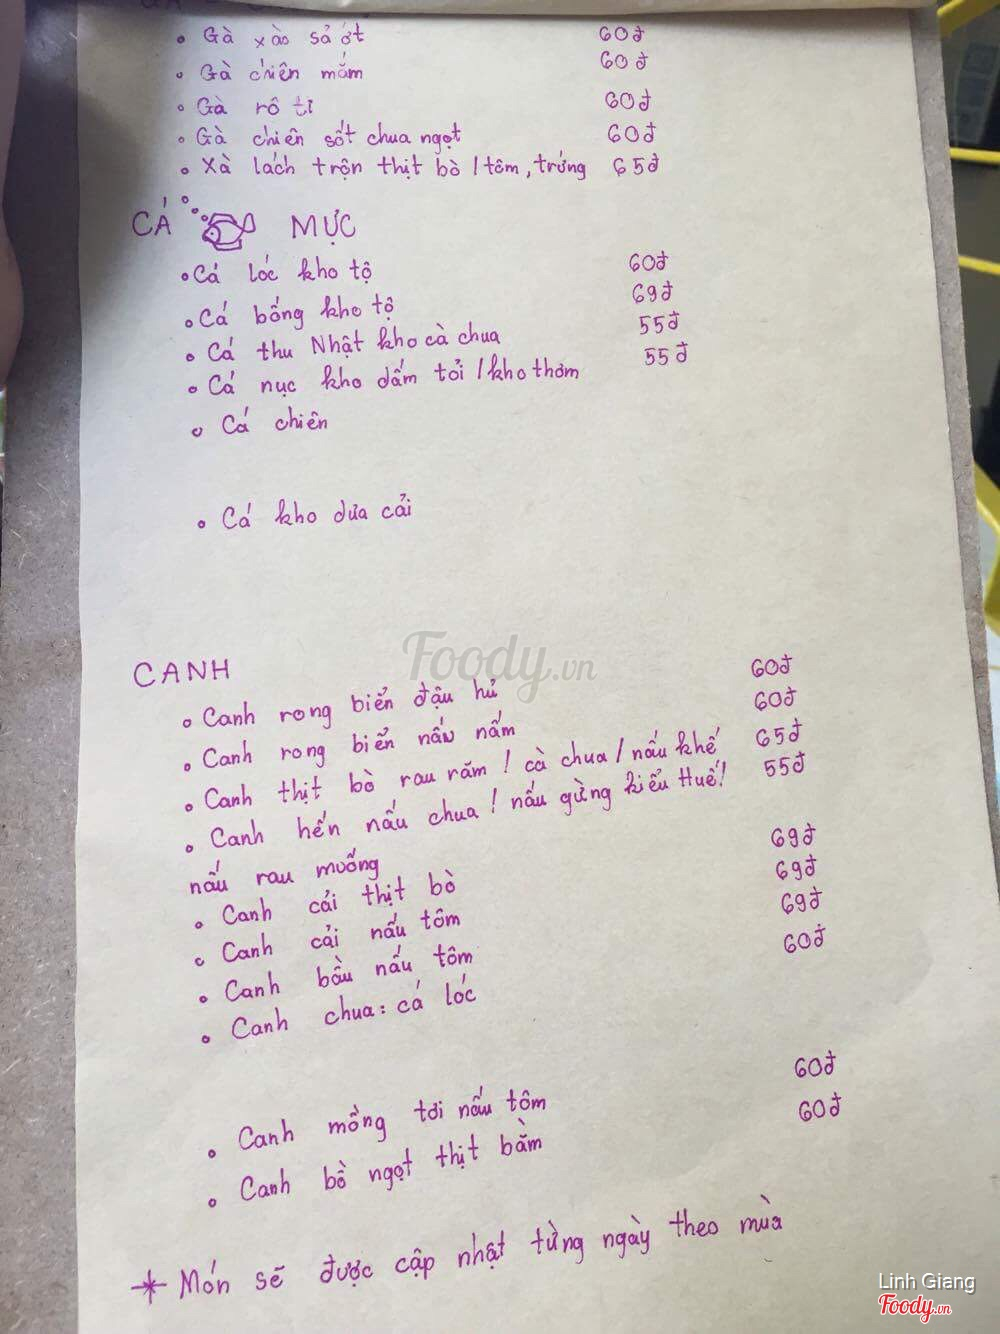 • Gà xào sả ớt 60đ
• Gà chiên mắm 60đ
• Gà rô ti 60đ
• Gà chiên sốt chua ngọt 60đ
• Xà lách trộn thịt bò / tôm, trứng 65đ
CÁ MỰC
• Cá lóc kho tộ 60đ
• Cá bống kho tộ 69đ
• Cá thu Nhật kho cà chua 55đ
• Cá nục kho dấm tỏi / kho thơm 55đ
• Cá chiên
• Cá kho dưa cải
Foody.vn
CANH
• Canh rong biển đậu hủ 60đ
• Canh rong biển nấu nấm 60đ
• Canh thịt bò rau răm / cà chua / nấu khế 65đ
• Canh hến nấu chua / nấu gừng kiểu Huế! 55đ
nấu rau muống
• Canh cải thịt bò 69đ
• Canh cải nấu tôm 69đ
• Canh bầu nấu tôm 69đ
• Canh chua: cá lóc 60đ
• Canh mồng tơi nấu tôm 60đ
• Canh bồ ngọt thịt bằm 60đ
* Món sẽ được cập nhật từng ngày theo mùa
Linh Giang
Foody.vn